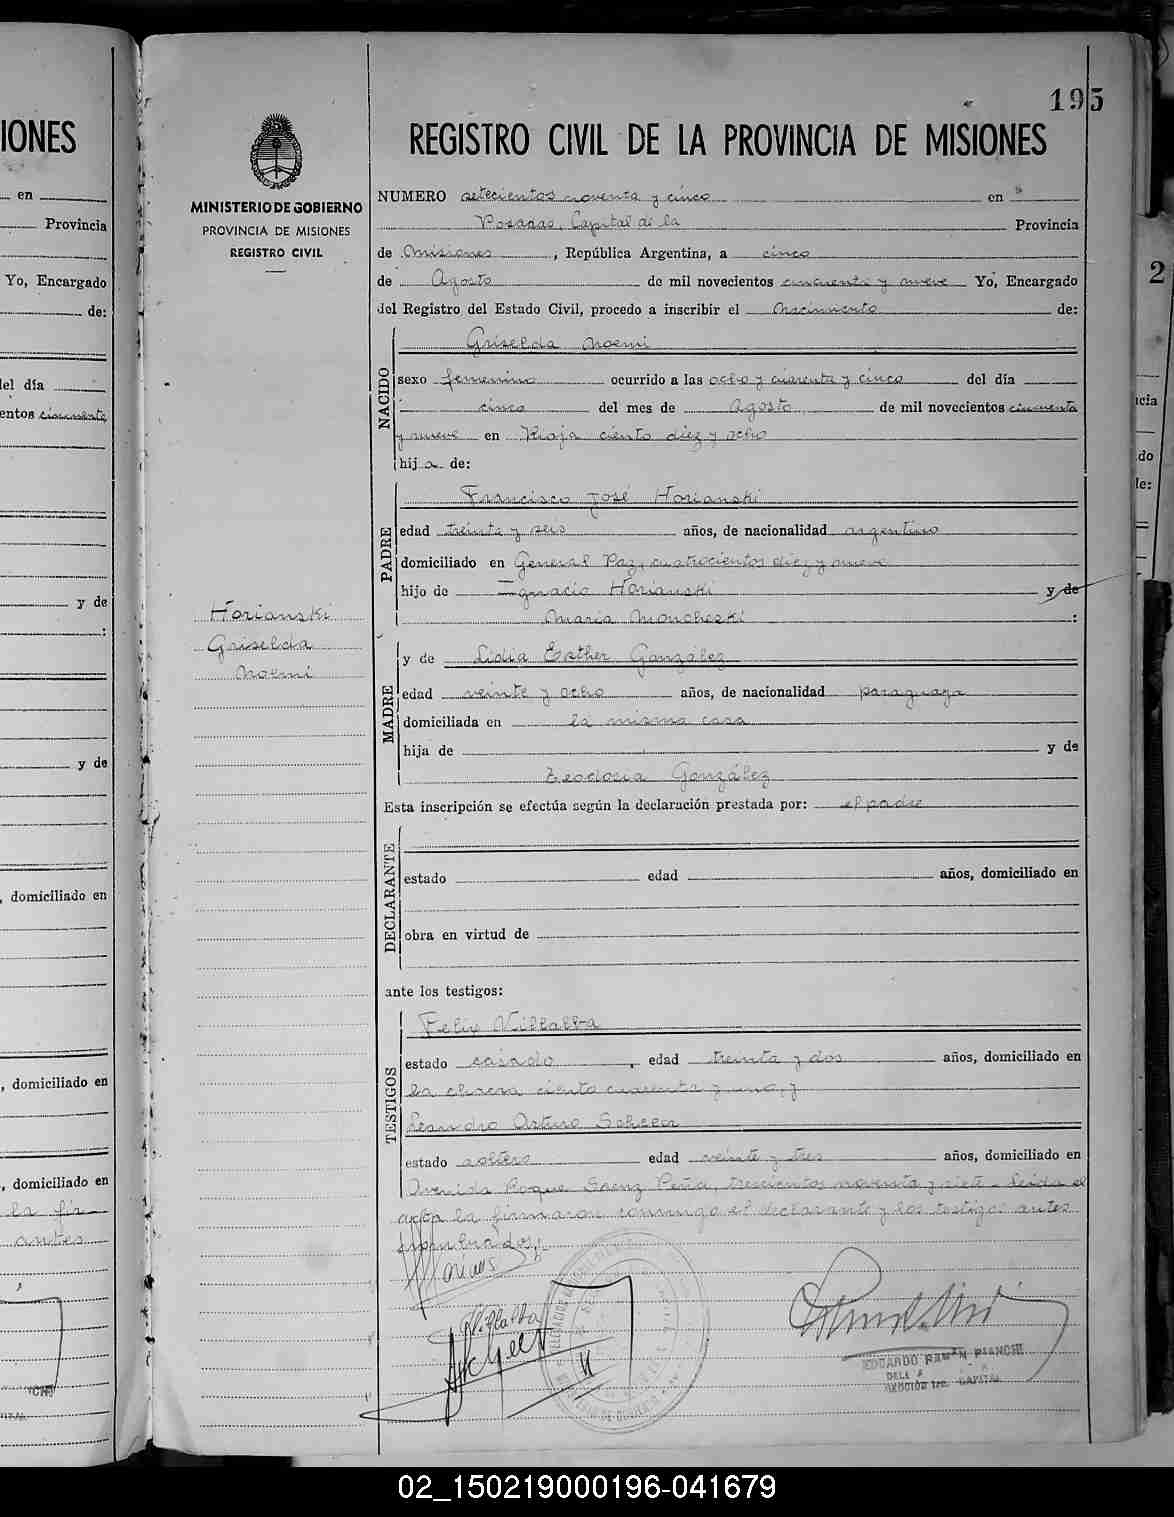 195
IONES
REGISTRO CIVIL DE LA PROVINCIA DE MISIONES
MINISTERIO DE GOBIERNO
PROVINCIA DE MISIONES
REGISTRO CIVIL
NUMERO setecientos noventa y cinco en
Posadas, Capital de la Provincia
de Misiones, República Argentina, a cinco
de Agosto de mil novecientos cincuenta y nueve Yo, Encargado
del Registro del Estado Civil, procedo a inscribir el Nacimiento de:
NACIDO
Griselda Noemi
sexo femenino ocurrido a las ocho y cuarenta y cinco del día
cinco del mes de Agosto de mil novecientos cincuenta
y nueve en Rioja ciento diez y ocho
hija de:
PADRE
Francisco José Horianski
edad treinta y seis años, de nacionalidad argentino
domiciliado en General Paz, cuatrocientos diez y nueve
hijo de Ignacio Horianski y de
María Moncheski :
Horianski
Griselda
Noemi
MADRE
y de Lidia Esther González
edad veinte y ocho años, de nacionalidad paraguaya
domiciliada en la misma casa
hija de y de
Teodora González
Esta inscripción se efectúa según la declaración prestada por: el padre
DECLARANTE
estado edad años, domiciliado en
obra en virtud de
ante los testigos:
TESTIGOS
Felix Villalba
estado casado, edad treinta y dos años, domiciliado en
la chacra ciento cuarenta y uno, y
Leandro Arturo Scheer
estado soltero edad veinte y tres años, domiciliado en
Avenida Roque Saenz Peña, trescientos noventa y siete - leida el
acta la firmaron conmigo el declarante y los testigos antes
nombrados;
Villalba
Scheer
EDUARDO RAMON BIANCHI
CAPITAL
en
Provincia
Yo, Encargado
de:
del día
entos cincuenta
y de
:
y de
, domiciliado en
, domiciliado en
, domiciliado en
la fir
antes
2
ncia
do
de:
02_150219000196-041679